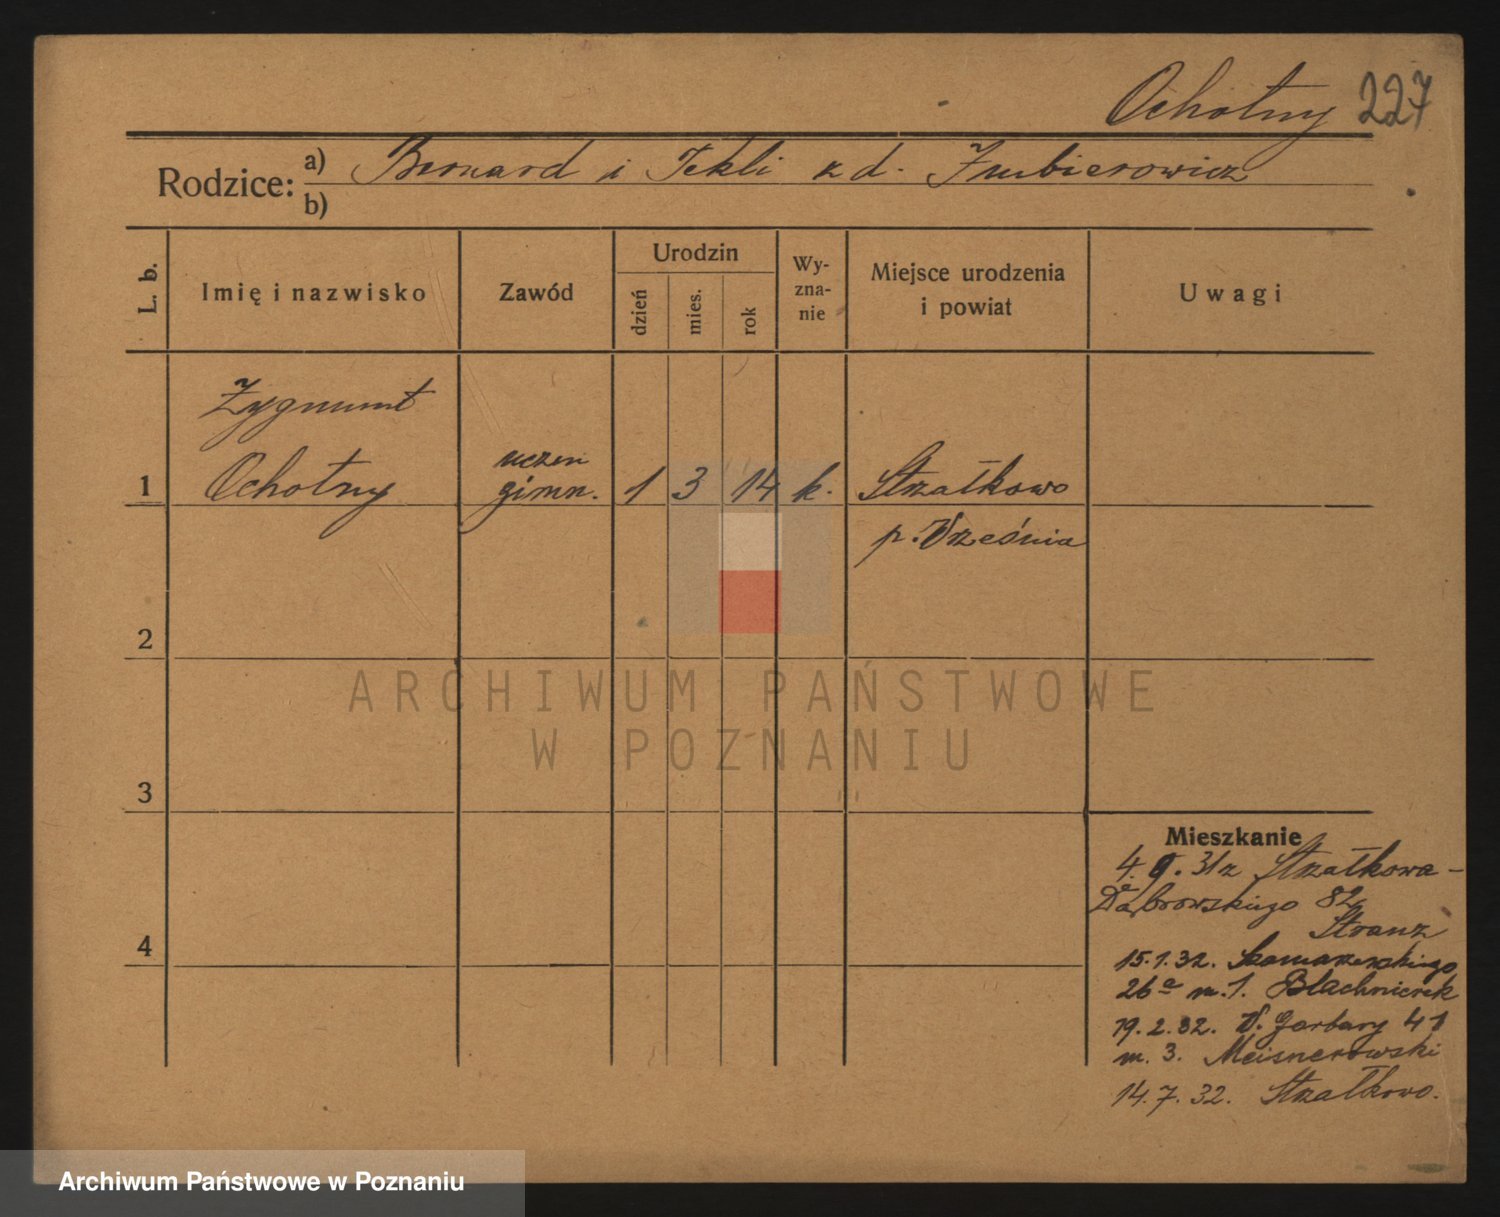 Ochotny 227
Rodzice: a) Bernard i Tekli z d. Imbierowicz
b)
L. b.
Imię i nazwisko
Zawód
Urodzin
dzień
mies.
rok
Wy-
zna-
nie
Miejsce urodzenia
i powiat
Uwagi
Zygmunt
1 Ochotny
uczeń
gimn.
1 3 14 k.
Strzałkowo
p. Września
2
3
4
Mieszkanie
4. 9. 31 z Strzałkowa -
Dąbrowskiego 82
Stranz
15.1.32.
26a m.1.
19.2.32. W. Garbary 41
m. 3. Meisnerowski
14.7.32. Strzałkowo.
ARCHIWUM PAŃSTWOWE
W POZNANIU
Archiwum Państwowe w Poznaniu